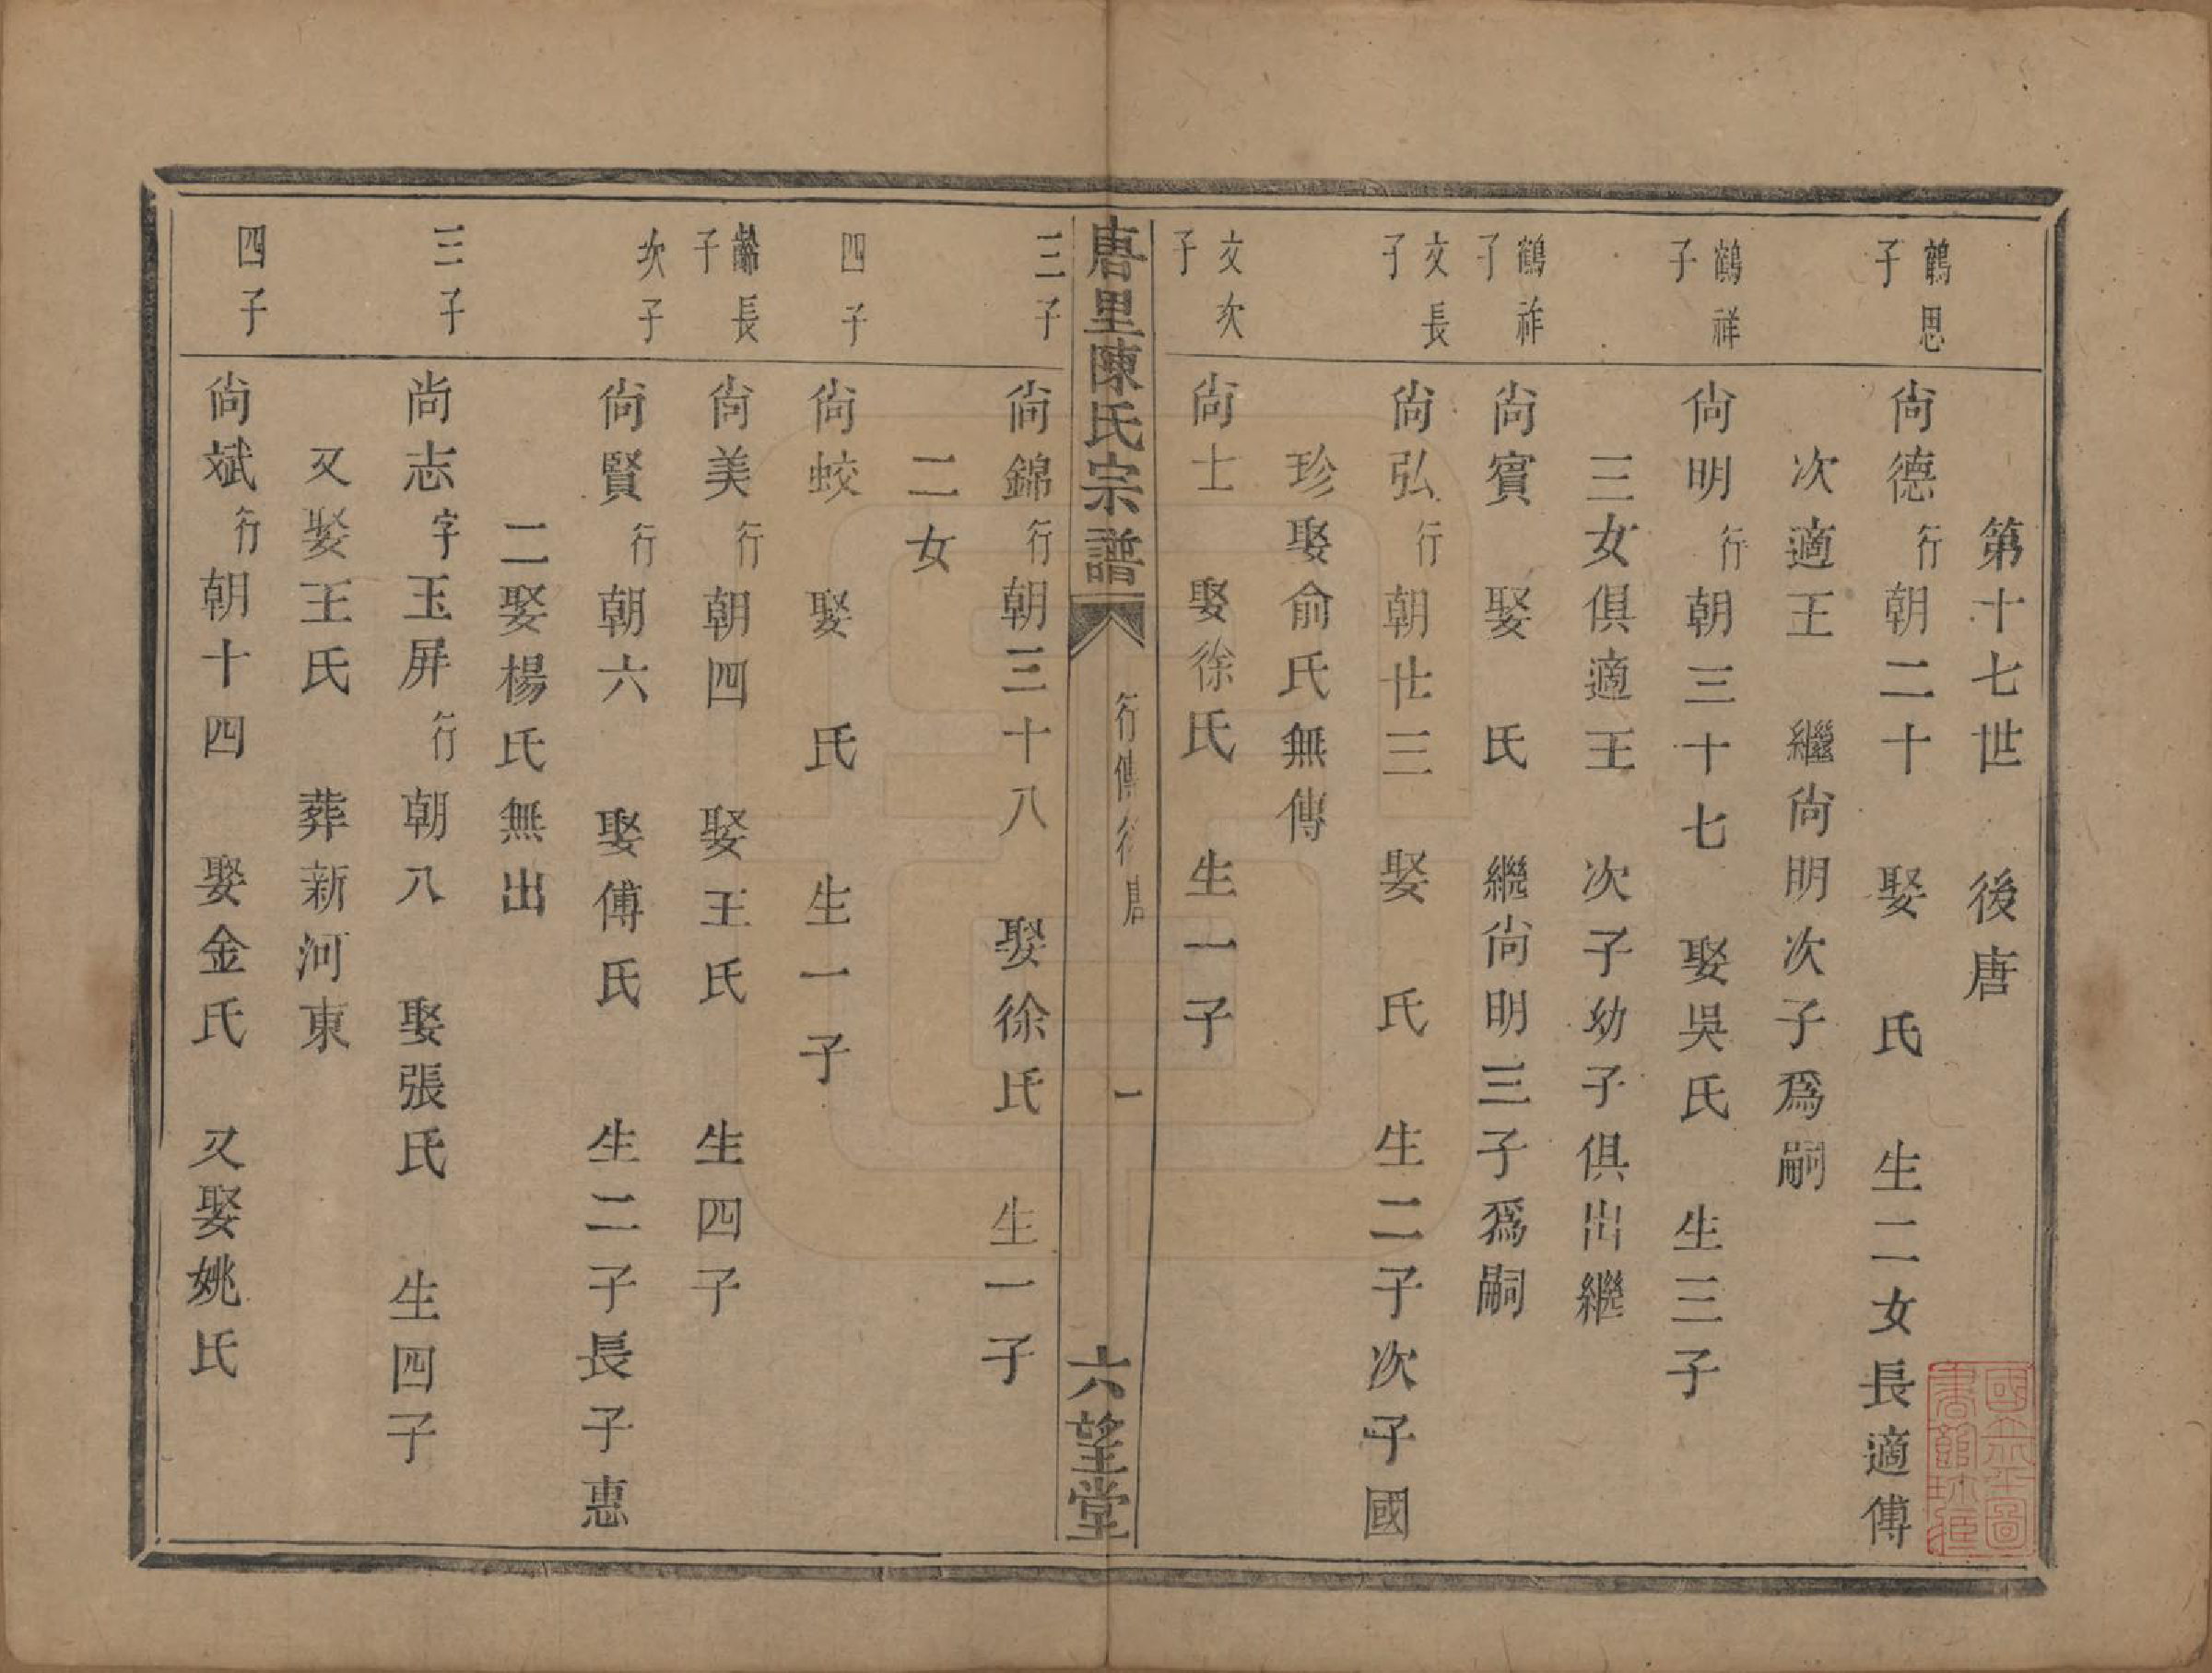 第十七世　後唐
鶴思子
尙德行朝二十　娶　氏　生二女長適傅
次適王　繼尙明次子爲嗣
鶴祥子
尙明行朝三十七　娶吳氏　生三子
三女俱適王　次子幼子俱出繼
鶴祚子
尙賓　娶　氏　繼尙明三子爲嗣
文長子
尙弘行朝廿三　娶　氏　生二子次子國
珍娶俞氏無傳
文次子
尙士　娶徐氏　生一子
唐里陳氏宗譜　行傳後唐　一　六望堂
三子
尙錦行朝三十八　娶徐氏　生一子
二女
四子
尙蛟　娶　氏　生一子
齡長子
尙美行朝四　娶王氏　生四子
次子
尙賢行朝六　娶傅氏　生二子長子惠
二娶楊氏無出
三子
尚志字玉屏行朝八　娶張氏　生四子
又娶王氏　葬新河東
四子
尙斌行朝十四　娶金氏　又娶姚氏
國立北平圖書館珍藏